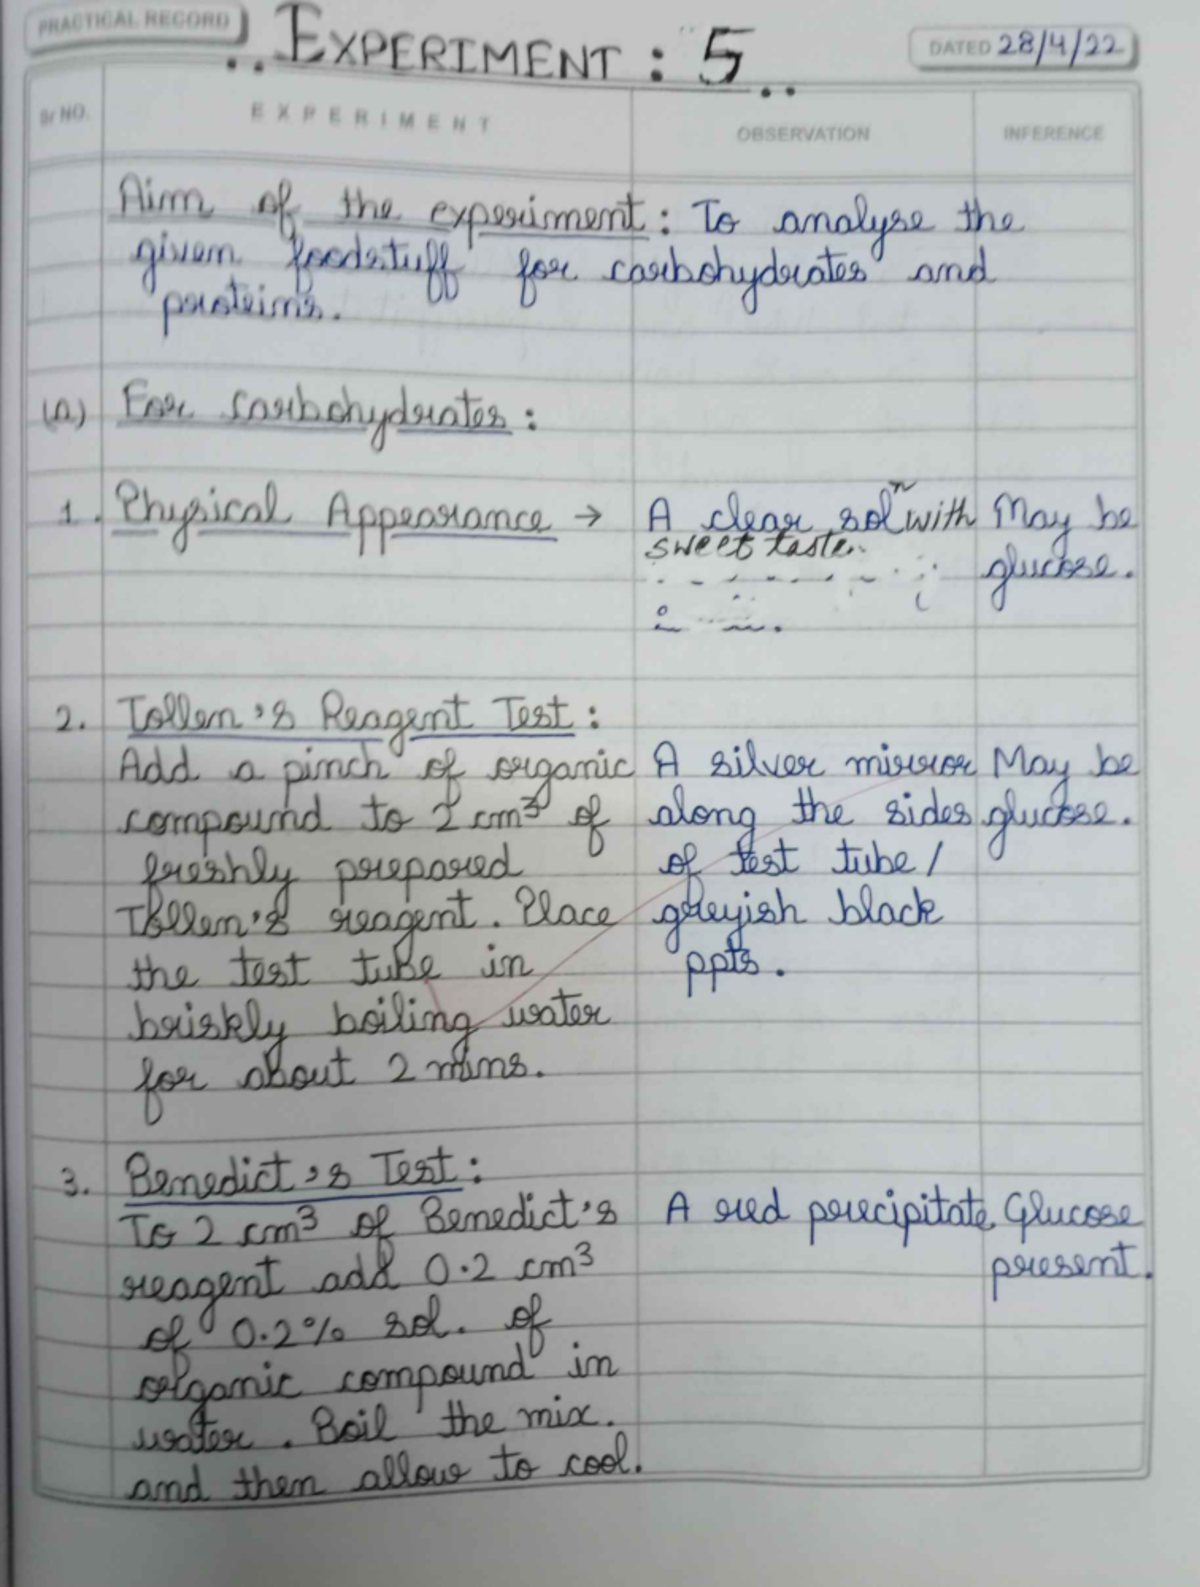 PRACTICAL RECORD
EXPERIMENT : 5
DATED 28/4/22
Sr NO.
EXPERIMENT
OBSERVATION
INFERENCE
Aim of the experiment : To analyse the
given foodstuff for carbohydrates and
proteins.
(A) For carbohydrates :
1. Physical Appearance →
A clear solⁿ with
sweet taste.
May be
glucose.
2. Tollen's Reagent Test :
Add a pinch of organic
compound to 2 cm³ of
freshly prepared
Tollen's reagent. Place
the test tube in
briskly boiling water
for about 2 mins.
A silver mirror
along the sides
of test tube /
greyish black
ppts.
May be
glucose.
3. Benedict's Test :
To 2 cm³ of Benedict's
reagent add 0.2 cm³
of 0.2% sol. of
organic compound in
water. Boil the mix.
and then allow to cool.
A red precipitate.
Glucose
present.